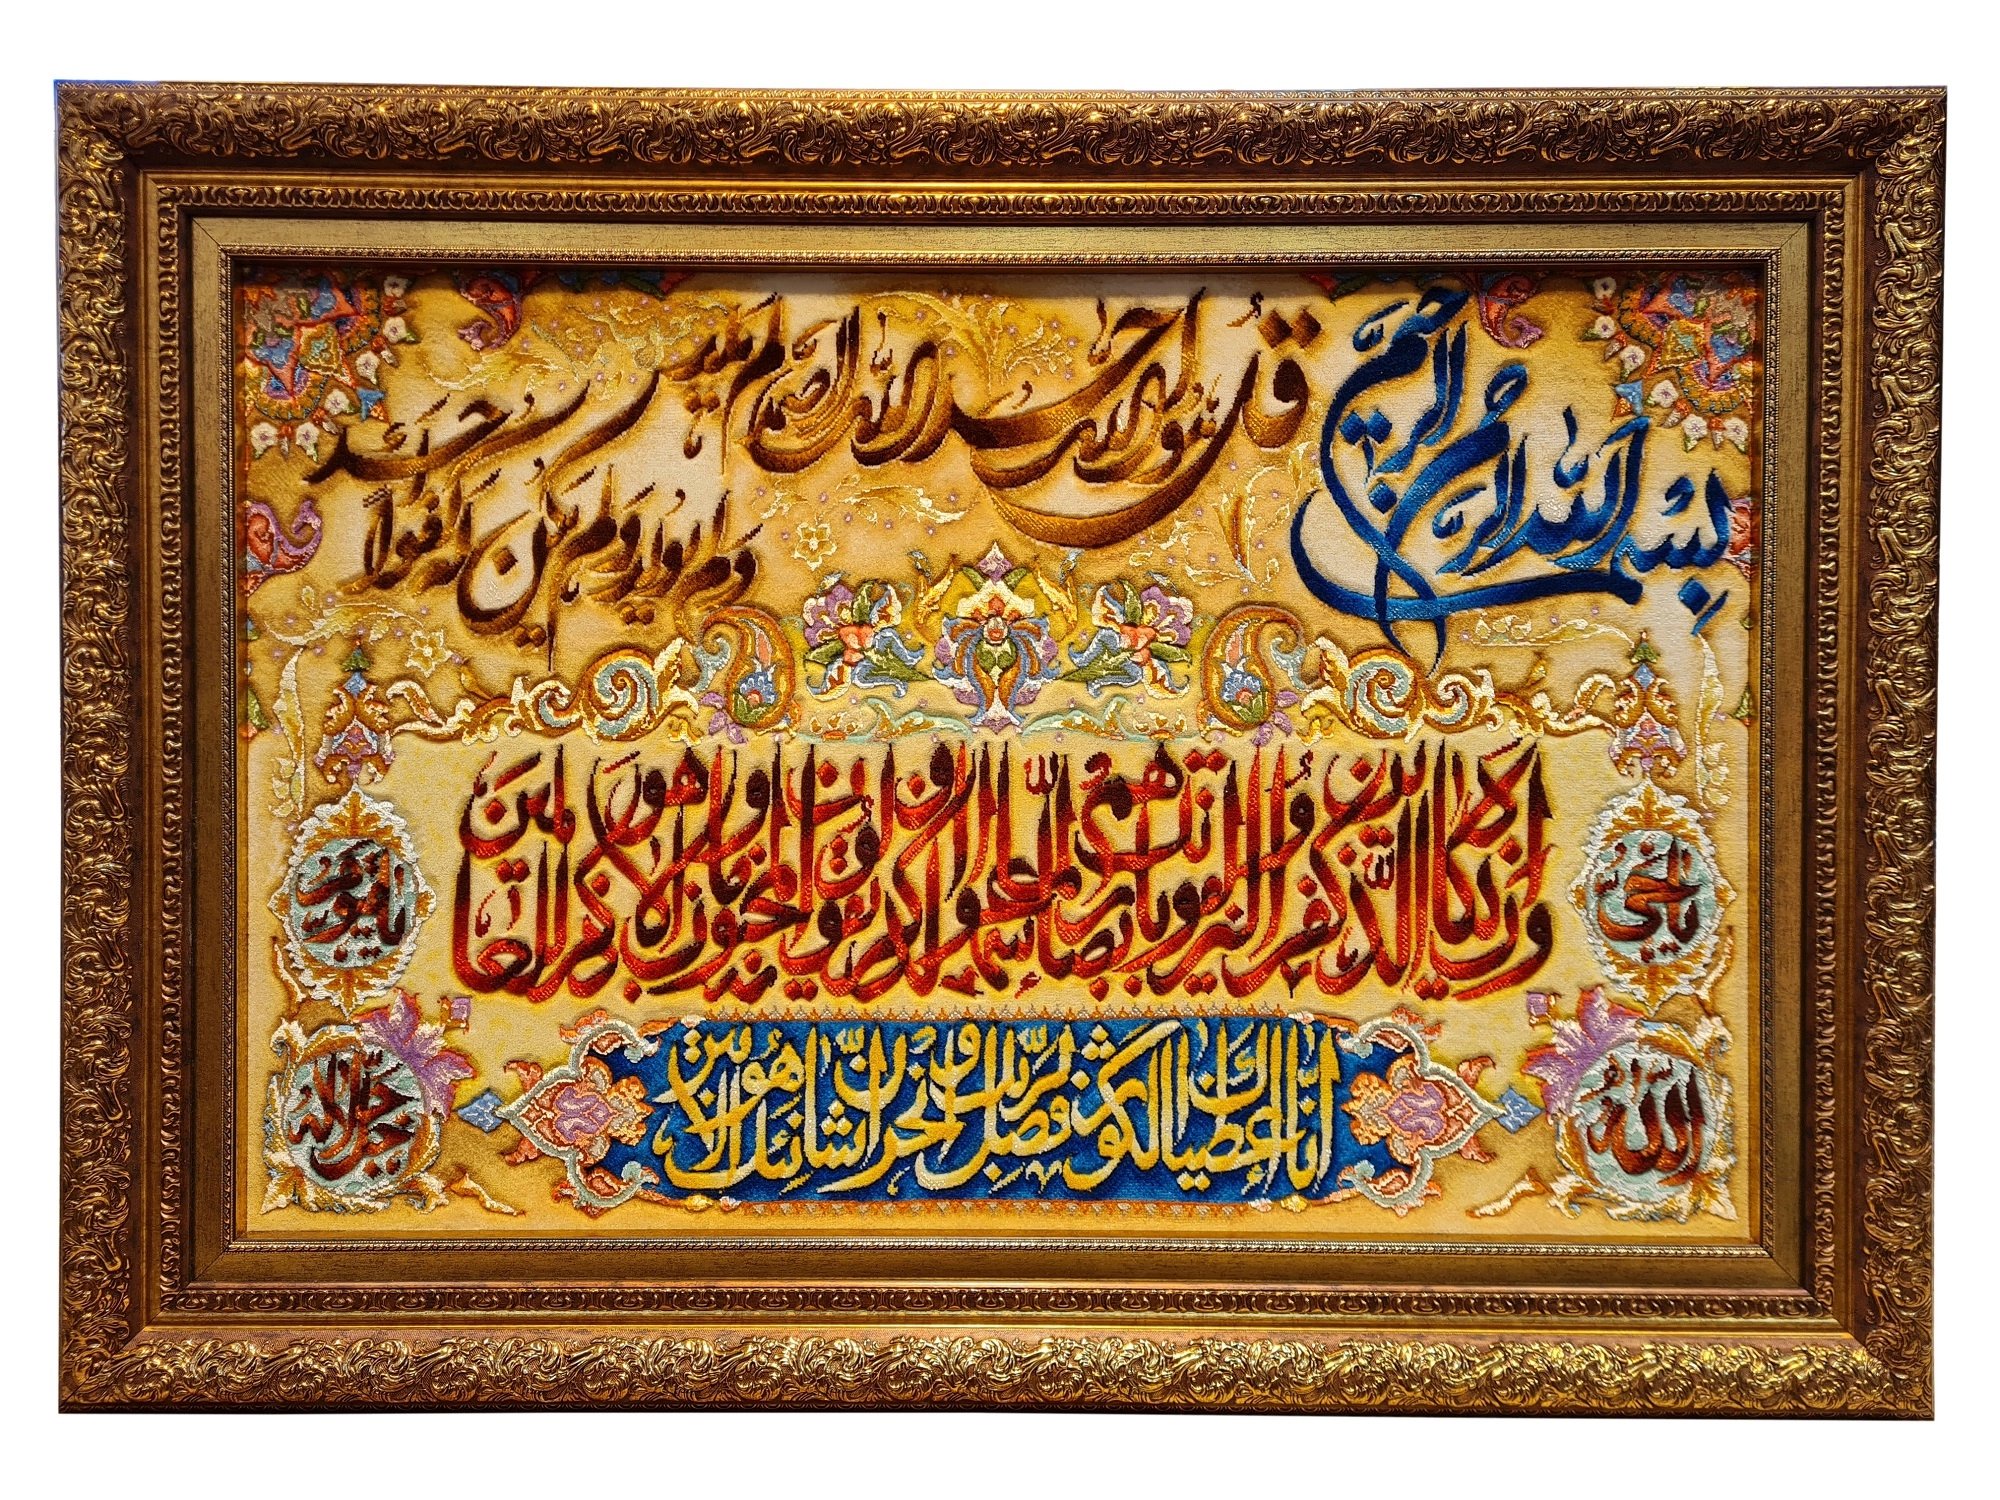 بِسْمِ اللهِ الرَّحْمنِ الرَّحيم
قُلْ هُوَ اللهُ اَحَد اللهُ الصَّمَد لَمْ يَلِدْ
وَلَمْ يُولَدْ وَلَمْ يَكُنْ لَهُ كُفُواً اَحَد
وَاِنْ يَكادُ الَّذينَ كَفَرُوا لَيُزْلِقُونَكَ بِاَبْصارِهِمْ لَمّا سَمِعُوا الذِّكْرَ وَيَقُولُونَ اِنَّهُ لَمَجْنُونٌ وَما هُوَ اِلّا ذِكْرٌ لِلْعالَمينَ
يا حَيُّ
يا قَيُّومُ
اِنّا اَعْطَيْناكَ الْكَوْثَرَ فَصَلِّ لِرَبِّكَ وَانْحَرْ اِنَّ شانِئَكَ هُوَ الْاَبْتَرُ
اللهُ
جَلَّ جَلالُهُ